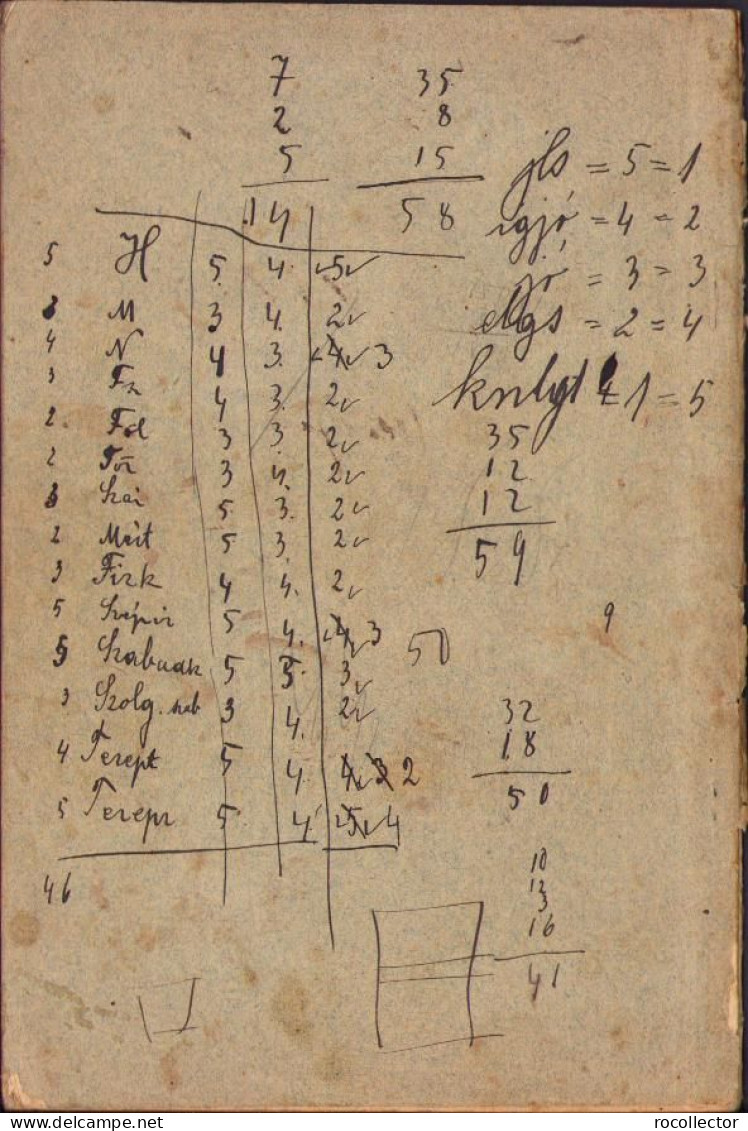 7 35
2 8
5 15
14 58
jls = 5 = 1
igjó = 4 = 2
jó = 3 = 3
elgs = 2 = 4
1 = 5
5 H 5 4 5
3 M 3 4 2
4 N 4 3 4 3
3 4 3 2
2 Föl 3 3 2
2 3 4 2
3 Szai 5 3 2
2 Mért 5 3 2
3 Fizk 4 4 2
5 Szépir 5 4 4 3
5 5 5 3
3 Szolg. 3 4 2
4 Terept 5 4 4 3 2
5 Terepr 5 4 5 4
46
35
12
12
59
9
50
32
18
50
10
12
3
16
41
rocollector